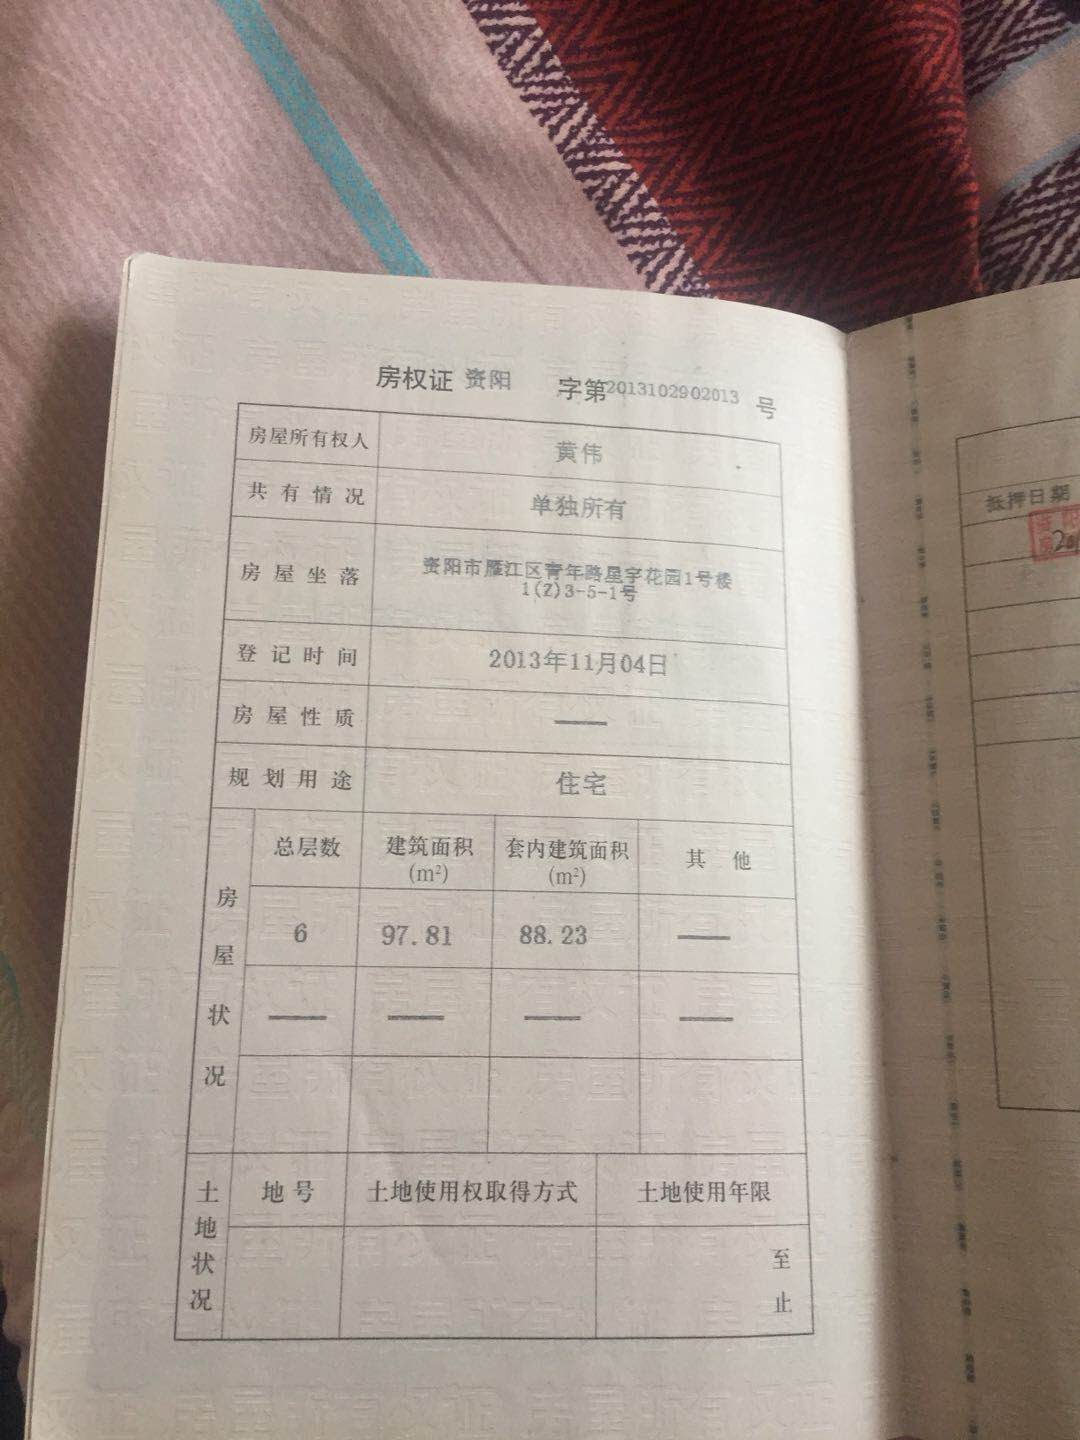 房权证 资阳 字第2013102902013 号
房屋所有权人 黄伟
共有情况 单独所有
房屋坐落 资阳市雁江区青年路星宇花园1号楼
1(Z)3-5-1号
登记时间 2013年11月04日
房屋性质 ——
规划用途 住宅
房屋状况
总层数 建筑面积(m²) 套内建筑面积(m²) 其他
6 97.81 88.23 ——
—— —— —— ——
土地状况
地号 土地使用权取得方式 土地使用年限
至
止
抵押日期